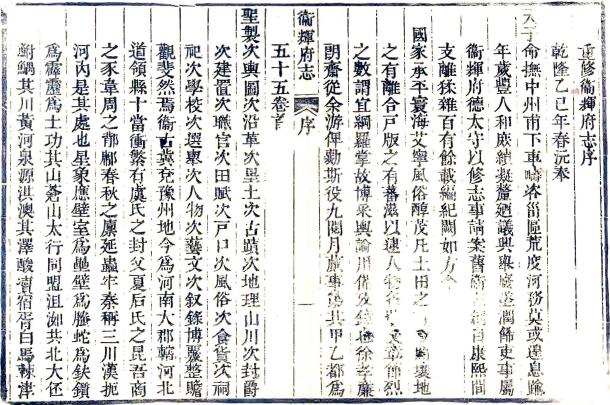 重修衞輝府志序
乾隆乙巳年春沅奉
天子命撫中州甫下車疇咨甾區荒度河務莫或遑息踰
年歲豐人和庶績凝釐廼議興舉廢墜潤飾吏事屬
衞輝府德太守以修志事請案舊衞志創自康熙間
支離猥雜百有餘載編紀闕如方今
國家承平寰海艾寧風俗醇茂凡土田之墾壤地
之有離合戸版之有蕃滋以逮人物文章節烈
之數謂宜網羅掌故博采輿論用徐孝廉
朗齋從余游俾勷斯役九閱月蕆事爲
衞輝府志 序 一
五十五卷首
聖製次輿圖次沿革次星土次古蹟次地理山川次封爵
次建置次職官次田賦次戸口次風俗次食貨次祠
祀次學校次選舉次人物次藝文次叙錄博覈整贍
觀斐然焉衞古冀兗豫州地今爲河南大郡轄河北
道領縣十當衝繁有虞氏之封父夏后氏之昆吾商
之家韋周之鄘鄁春秋之廩延蟲牢秦稱三川漢扼
河内是其處也星象應壁室爲壘壁爲騰蛇爲鈇鑕
爲霹靂爲土功其山蒼山太行同盟沮洳共北大伾
鮒鰅其川黃河泉源淇澳其澤酸瀆宿胥白馬棘津